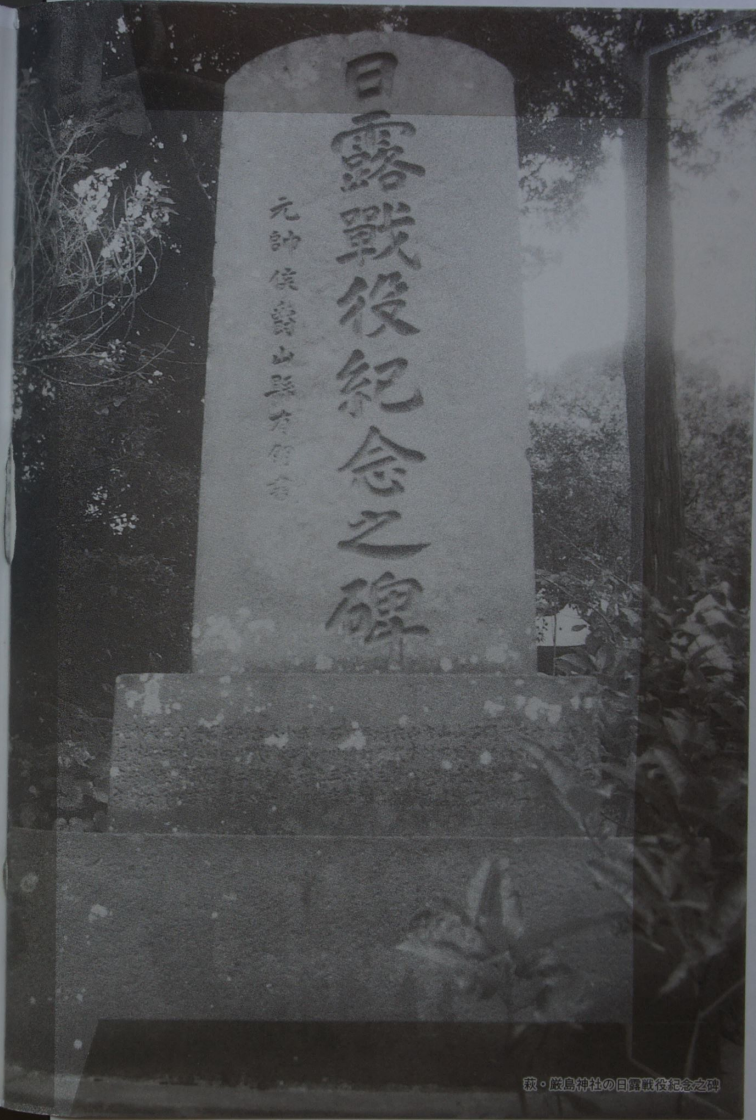 日露戰役紀念之碑
元帥侯爵山縣有朋書
萩・厳島神社の日露戦役紀念之碑